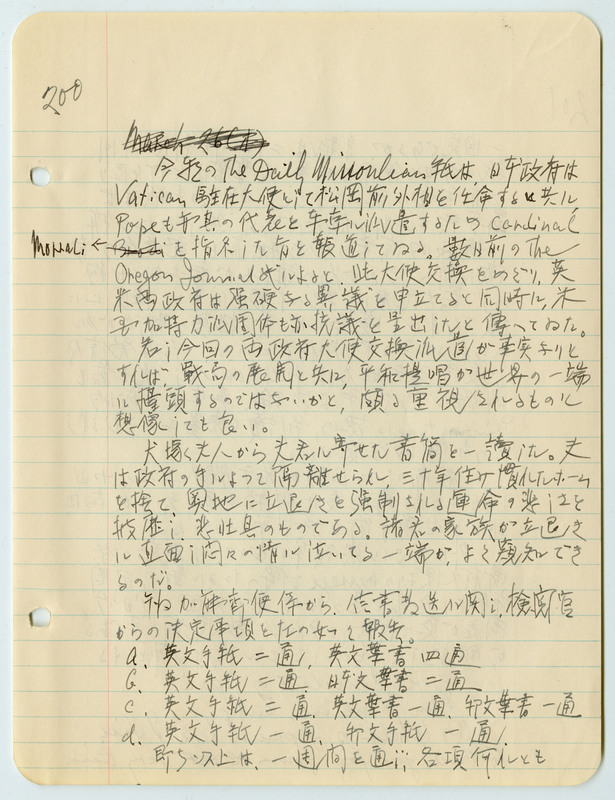 200
March 26(木)
今朝の The Daily Missoulian 紙は 日本政府は
Vatican 駐在大使として松岡前外相を任命すると共に
Pope も亦其の代表を 派遣するため Cardinal
Morrali ← を指名した旨を報道してゐる。数日前の The
Oregon Journal 紙によると、此大使交換をめぐり、英
米両政府は強硬なる異議を申立てると同時に、米
国加特力派団体も亦抗議を呈出したと傳へてゐた。
若し今回の両政府大使交換派遣が事実なりと
すれば、戰局の展開と共に、平和提唱が世界の一端
に擡頭するのではないかと、頗る重視されるものと
想像しても良い。
犬塚夫人から夫君に寄せた書簡を一讀した。夫
は政府の手によつて隔離せられ、三十年住み慣れたホーム
を捨て、奥地に立退きを強制される運命の悲しさを
披歴し、悲壮其のものである。諸君の家族が立退き
に直面し悶々の情に泣いてゐる一端が、よく察知でき
るのだ。
郵便係から、信書発送に関し、検察官
からの決定事項を左の如く報告。
a. 英文手紙 二通、英文葉書 四通
b. 英文手紙 二通 日本文葉書 二通
c. 英文手紙 二通、英文葉書一通、邦文葉書 一通
d. 英文手紙 一通、邦文手紙 一通、
即ち以上は、一週間を通し、各項何れとも